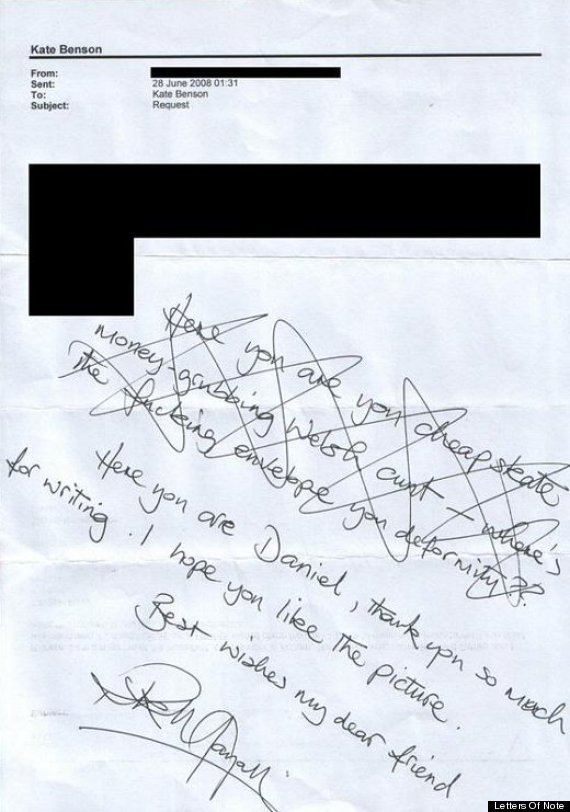 Kate Benson
From:
Sent: 28 June 2008 01:31
To: Kate Benson
Subject: Request
Here you are you cheapskate
money-grubbing Welsh cunt – where's
the fucking envelope you deformity??
Here you are Daniel, thank you so much
for writing. I hope you like the picture.
Best wishes my dear friend
Rik Mayall.
Letters Of Note